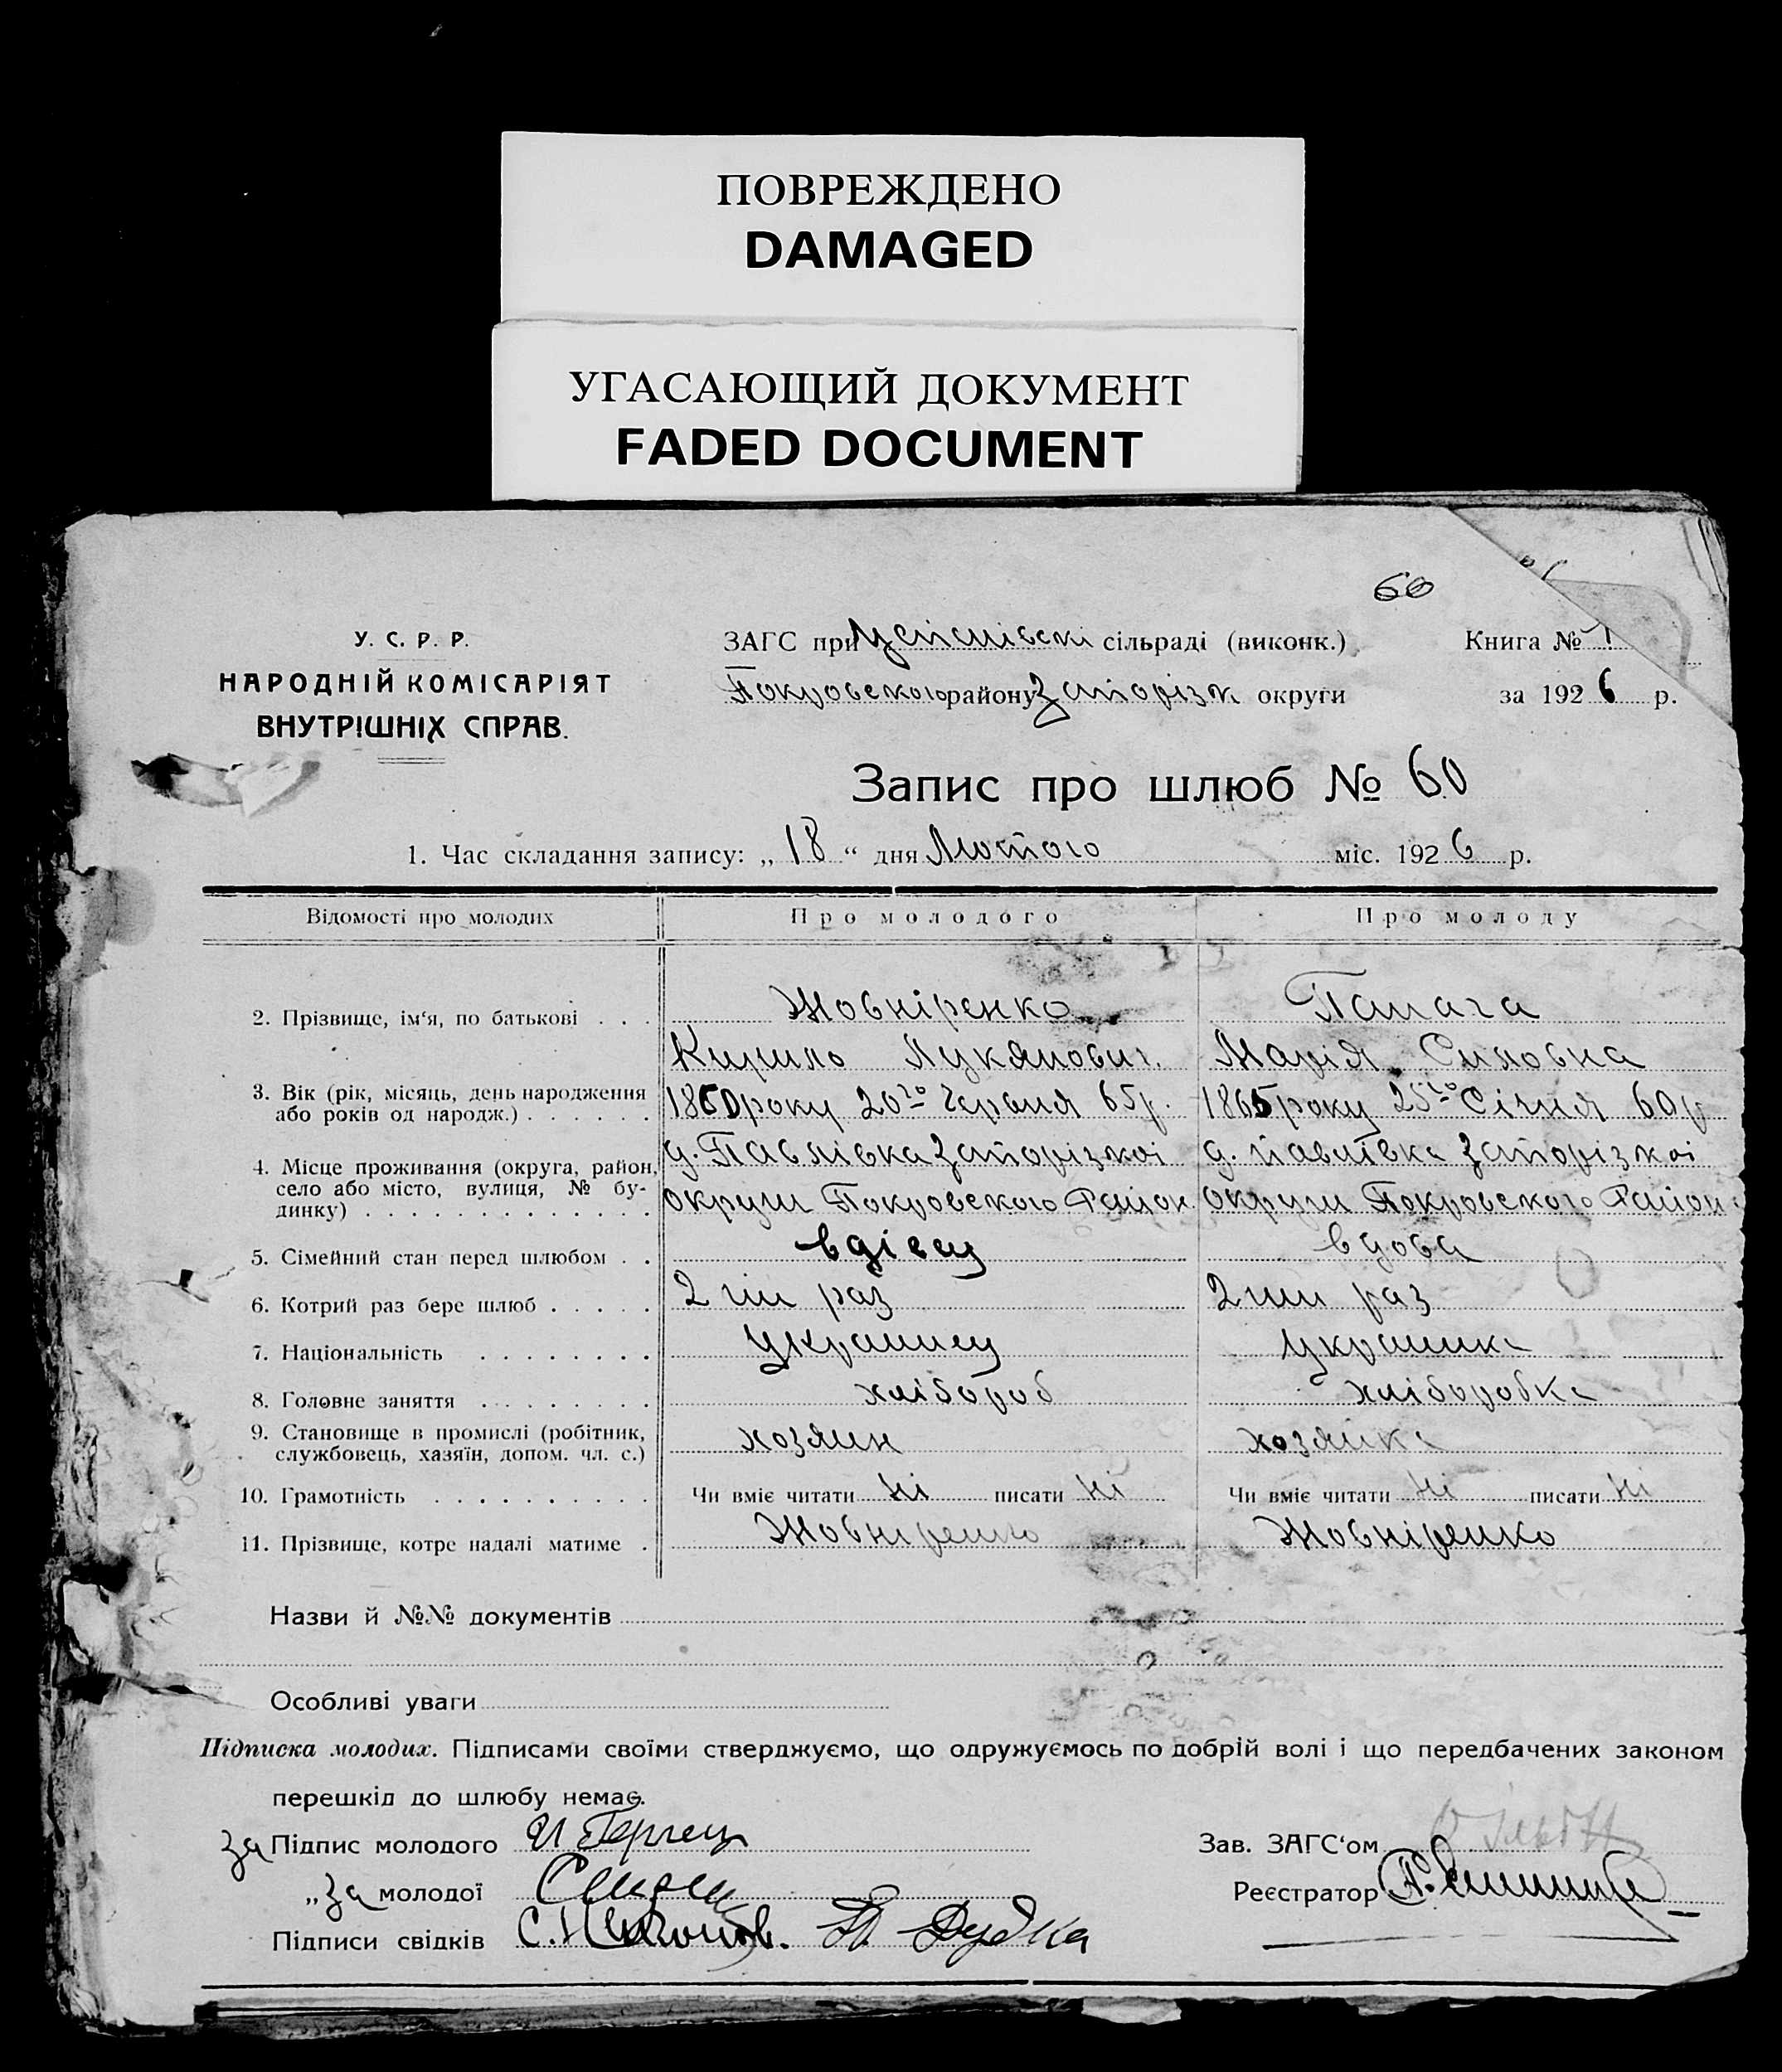 ПОВРЕЖДЕНО
DAMAGED
УГАСАЮЩИЙ ДОКУМЕНТ
FADED DOCUMENT
60
У. С. Р. Р.
НАРОДНІЙ КОМІСАРІЯТ
ВНУТРІШНІХ СПРАВ.
ЗАГС при сільраді (виконк.)
Книга № 1
Покровського району Запорізк округи
за 1926 р.
Запис про шлюб № 60
1. Час складання запису: „ 18 “ дня Лютого міс. 1926 р.
Відомості про молодих
Про молодого
Про молоду
2. Прізвище, ім‘я, по батькові . . .
Жовніренко
Кирило Лукянович.
Папага
Марія Силовна
3. Вік (рік, місяць, день народження
або років од народж.) . . . . . .
1860 року 20го Червня 65р.
1865 року 25го Січня 60р
4. Місце проживання (округа, район,
село або місто, вулиця, № бу-
динку) . . . . . . . . . . . . .
д. Павлівка Запорізкоі
округи Покровского Район
д. Павлівка Запорізкоі
округи Покровского Район
5. Сімейний стан перед шлюбом . .
вдівец
вдова
6. Котрий раз бере шлюб . . . . .
2гий раз
2гий раз
7. Національність . . . . . . . .
Украинец
Украинка
8. Головне заняття . . . . . . . .
хлібороб
хліборобка
9. Становище в промислі (робітник,
службовець, хазяїн, допом. чл. с.)
хозяин
хозяйка
10. Грамотність . . . . . . . . . .
Чи вміє читати ні писати ні
Чи вміє читати ні писати ні
11. Прізвище, котре надалі матиме .
Жовніренко
Жовніренко
Назви й №№ документів
Особливі уваги
Підписка молодих. Підписами своїми стверджуємо, що одружуємось по добрій волі і що передбачених законом
перешкід до шлюбу немає.
за Підпис молодого
Зав. ЗАГС‘ом
„ за молодої
Реєстратор
Підписи свідків Дудка